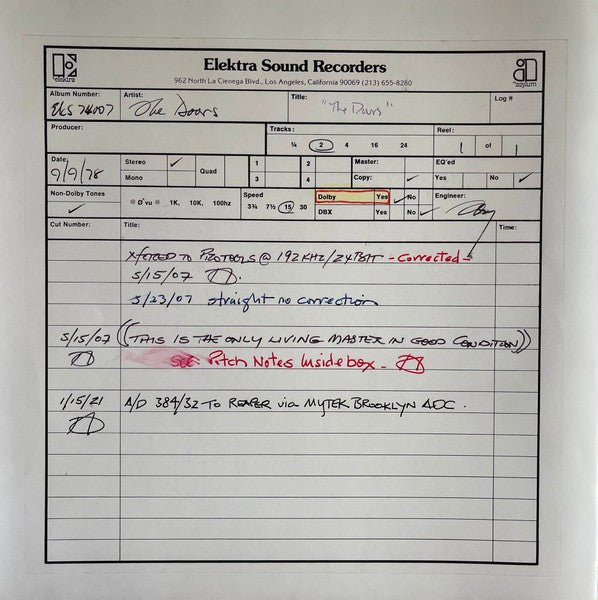 elektra
Elektra Sound Recorders
962 North La Cienega Blvd., Los Angeles, California 90069 (213) 655-8280
asylum
Album Number: Artist: Title: Log #
EKS 74007 The Doors "The Doors"
Producer: Tracks: Reel:
¼ 2 4 16 24 1 of 1
Date: Stereo ✓ Quad 1 2 Master: EQ'ed
9/9/78 Mono 3 4 Copy: ✓ Yes No ✓
Non-Dolby Tones Speed Dolby Yes ✓ No Engineer:
✓ @ Ø vu @ 1K, 10K, 100hz 3¾ 7½ 15 30 DBX Yes No ✓
Cut Number: Title: Time:
Xferred to Protools @ 192KHz/24Bit - Corrected -
5/15/07
5/23/07 straight no correction
5/15/07 ((THIS IS THE ONLY LIVING MASTER IN GOOD CONDITION))
See: Pitch Notes Inside box -
1/15/21 A/D 384/32 TO REAPER via MYTEK BROOKLYN ADC.